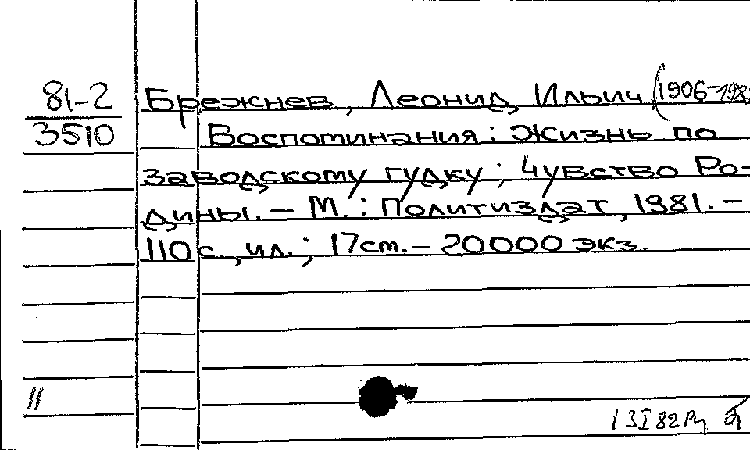 81-2
3510
Брежнев, Леонид Ильич (1906-198
Воспоминания: Жизнь по
заводскому гудку; Чувство Ро-
дины. – М.: Политиздат, 1981. –
110 с., ил.; 17 см. – 20000 экз.
11
13 I 82